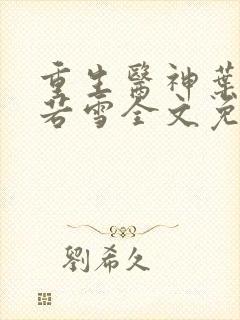 重生醫神葉
若雪全文免
劉希久